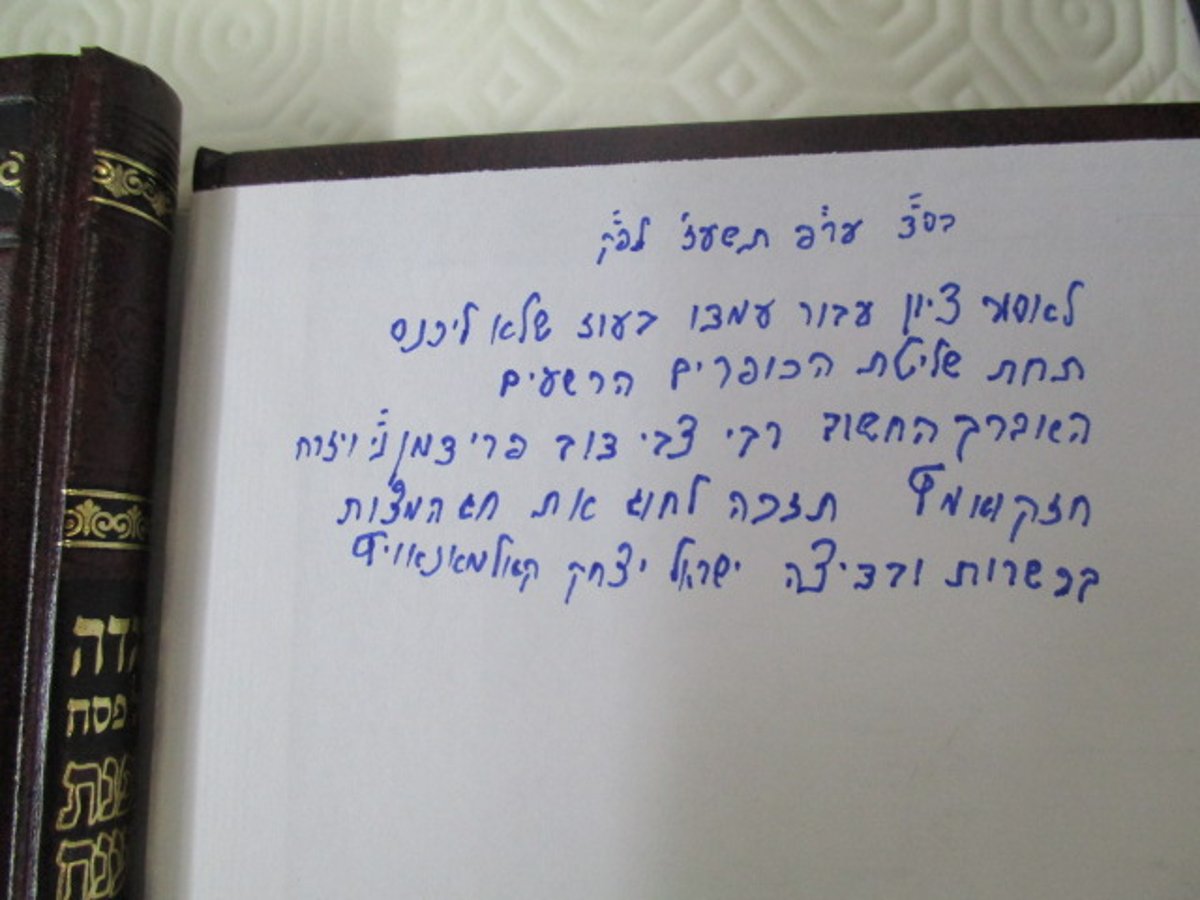 בס״ד ער״פ תשע״ז לפ״ק
לאסיר ציון עבור עמדו בעוז שלא ליכנס
תחת שליטת הכופרים הרשעים
האברך החשוב רבי צבי דוב פרידמן נ״י
חזק ואמץ תזכה לחוג את חג המצות
בכשרות ובדיצה ישראל יצחק קאלמאנאוויץ
גדה
פסח